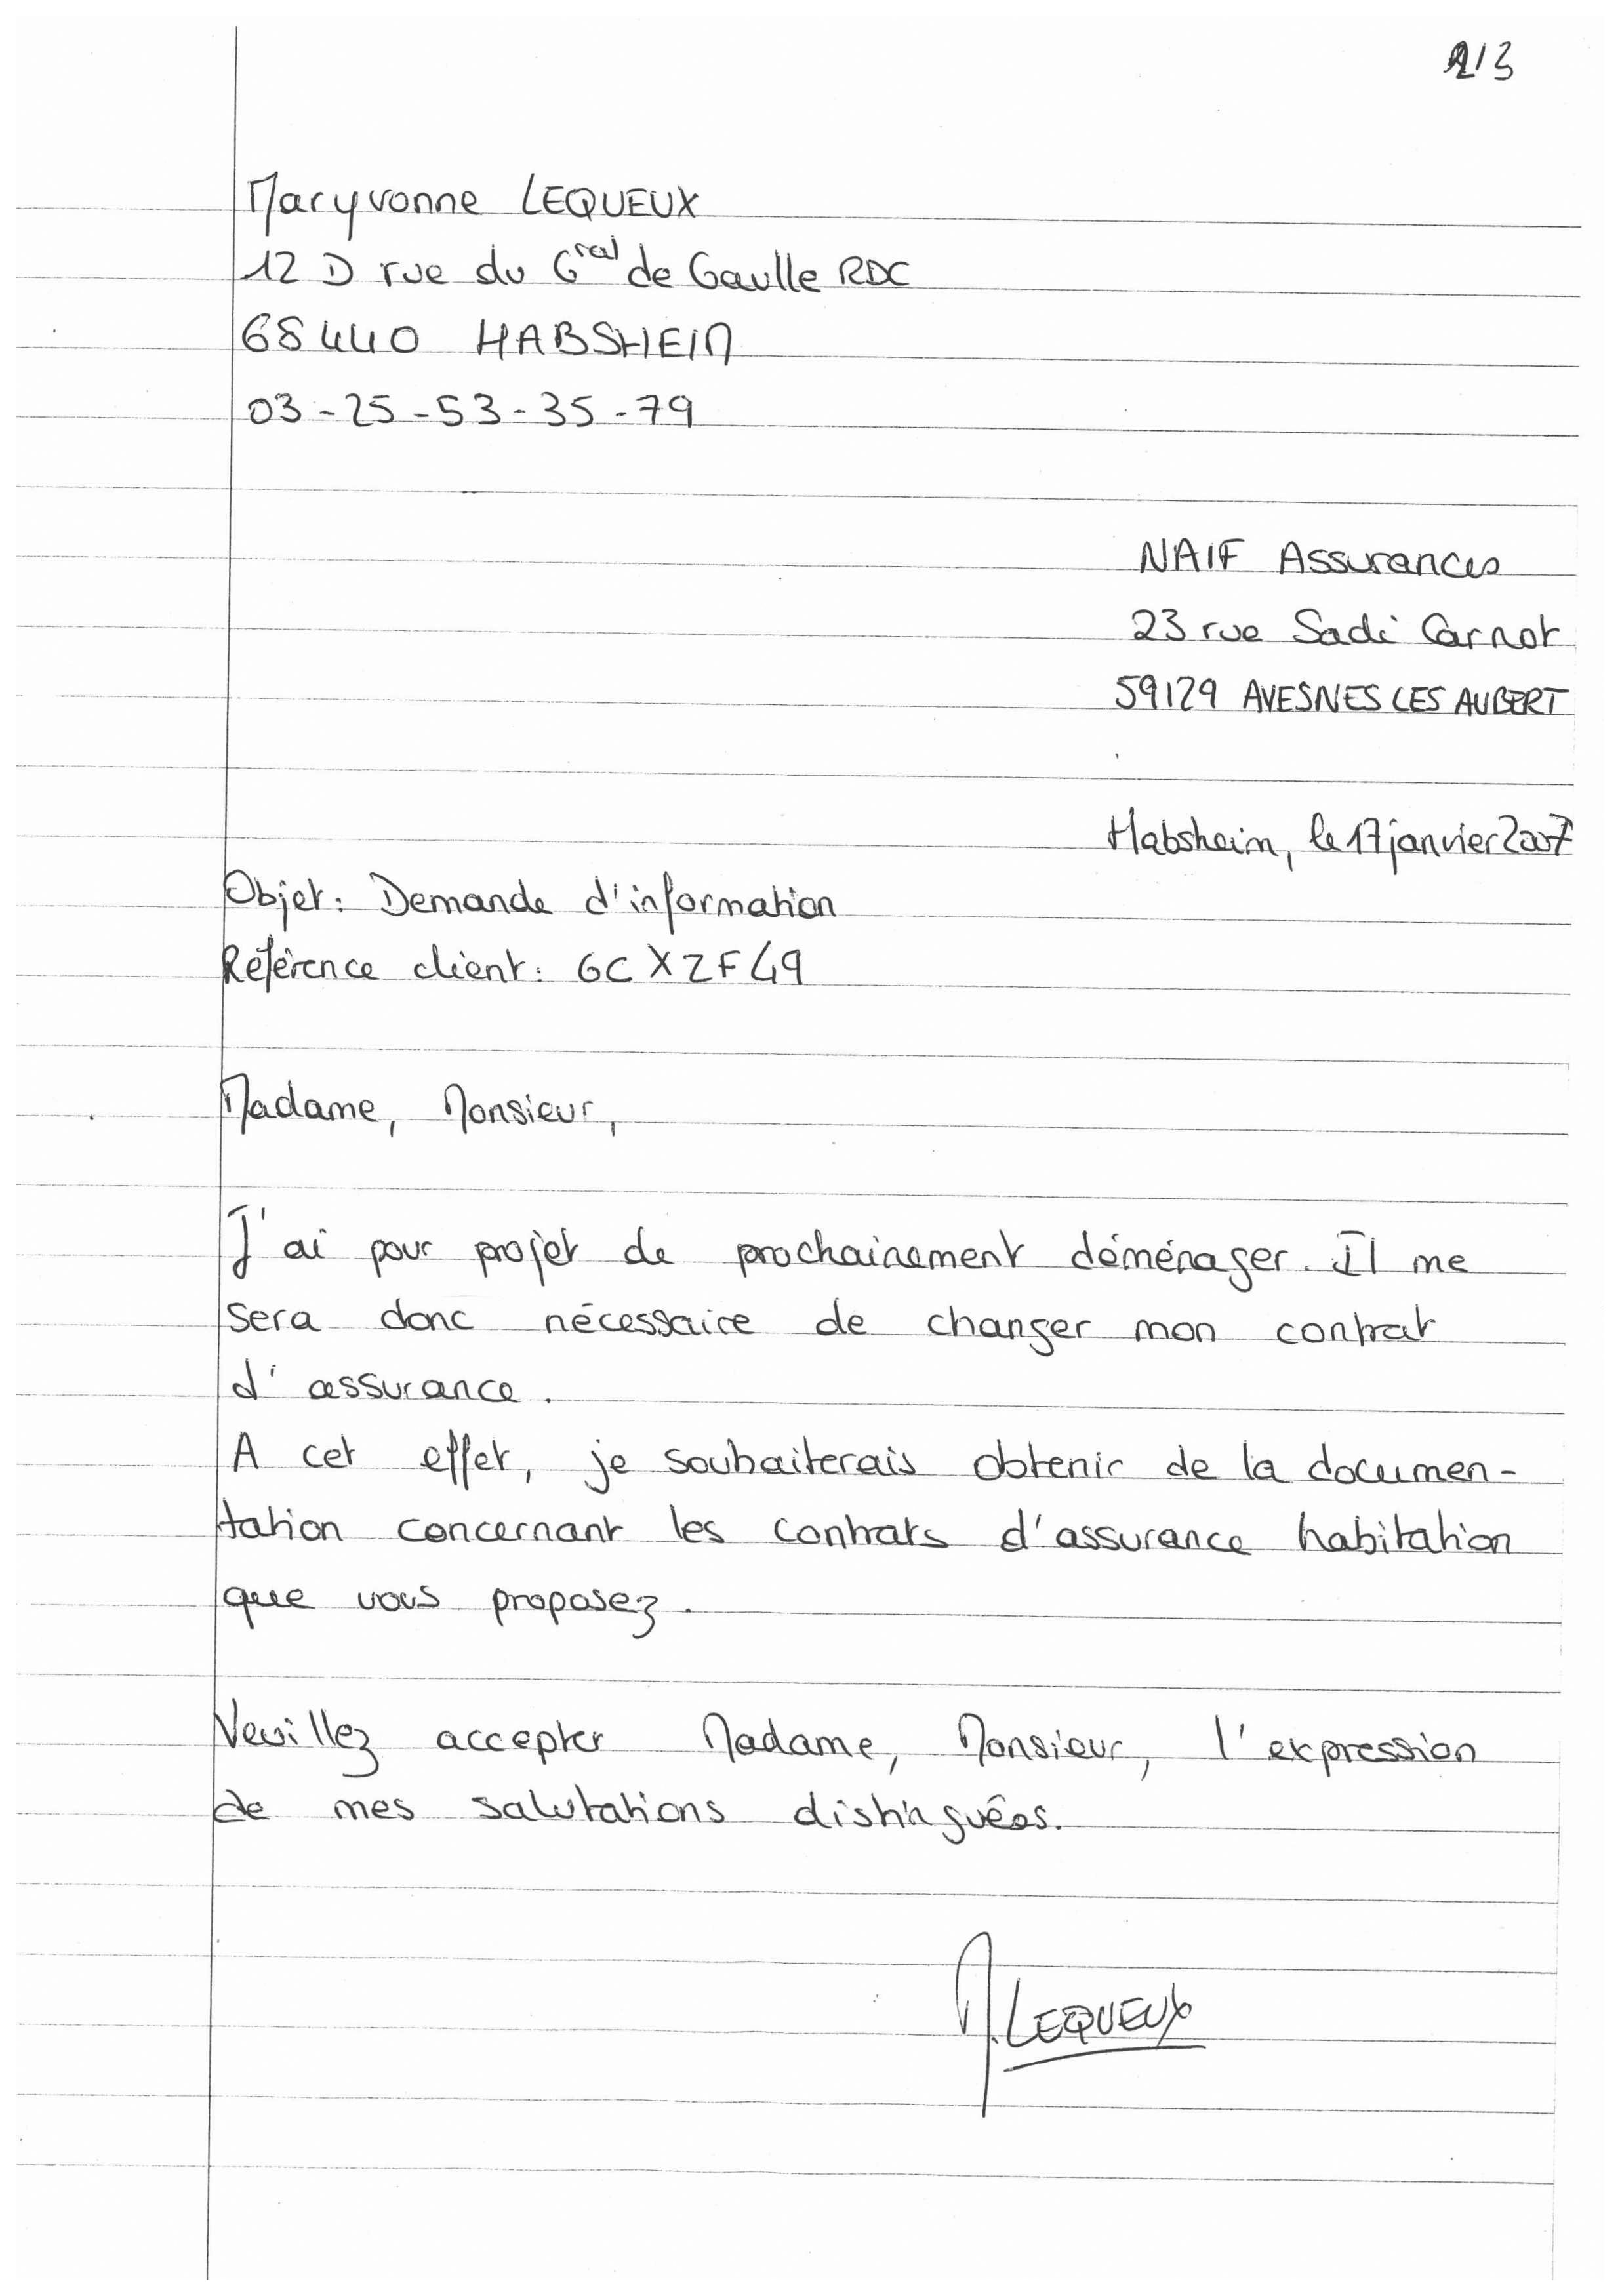 Maryvonne LEQUEUX
12 D rue du Gral de Gaulle RDC
68440 HABSHEIM
03-25-53-35-79
NAIF Assurances
23 rue Sadi Carnot
59129 AVESNES LES AUBERT
Habsheim, le 17 janvier 2007
Objet: Demande d'information
Référence client: GCXZF49
Madame, Monsieur,
J'ai pour projet de prochainement déménager. Il me
sera donc nécessaire de changer mon contrat
d'assurance.
A cet effet, je souhaiterais obtenir de la documen-
tation concernant les contrats d'assurance habitation
que vous proposez.
Veuillez accepter Madame, Monsieur, l'expression
de mes salutations distinguées.
M. LEQUEUX